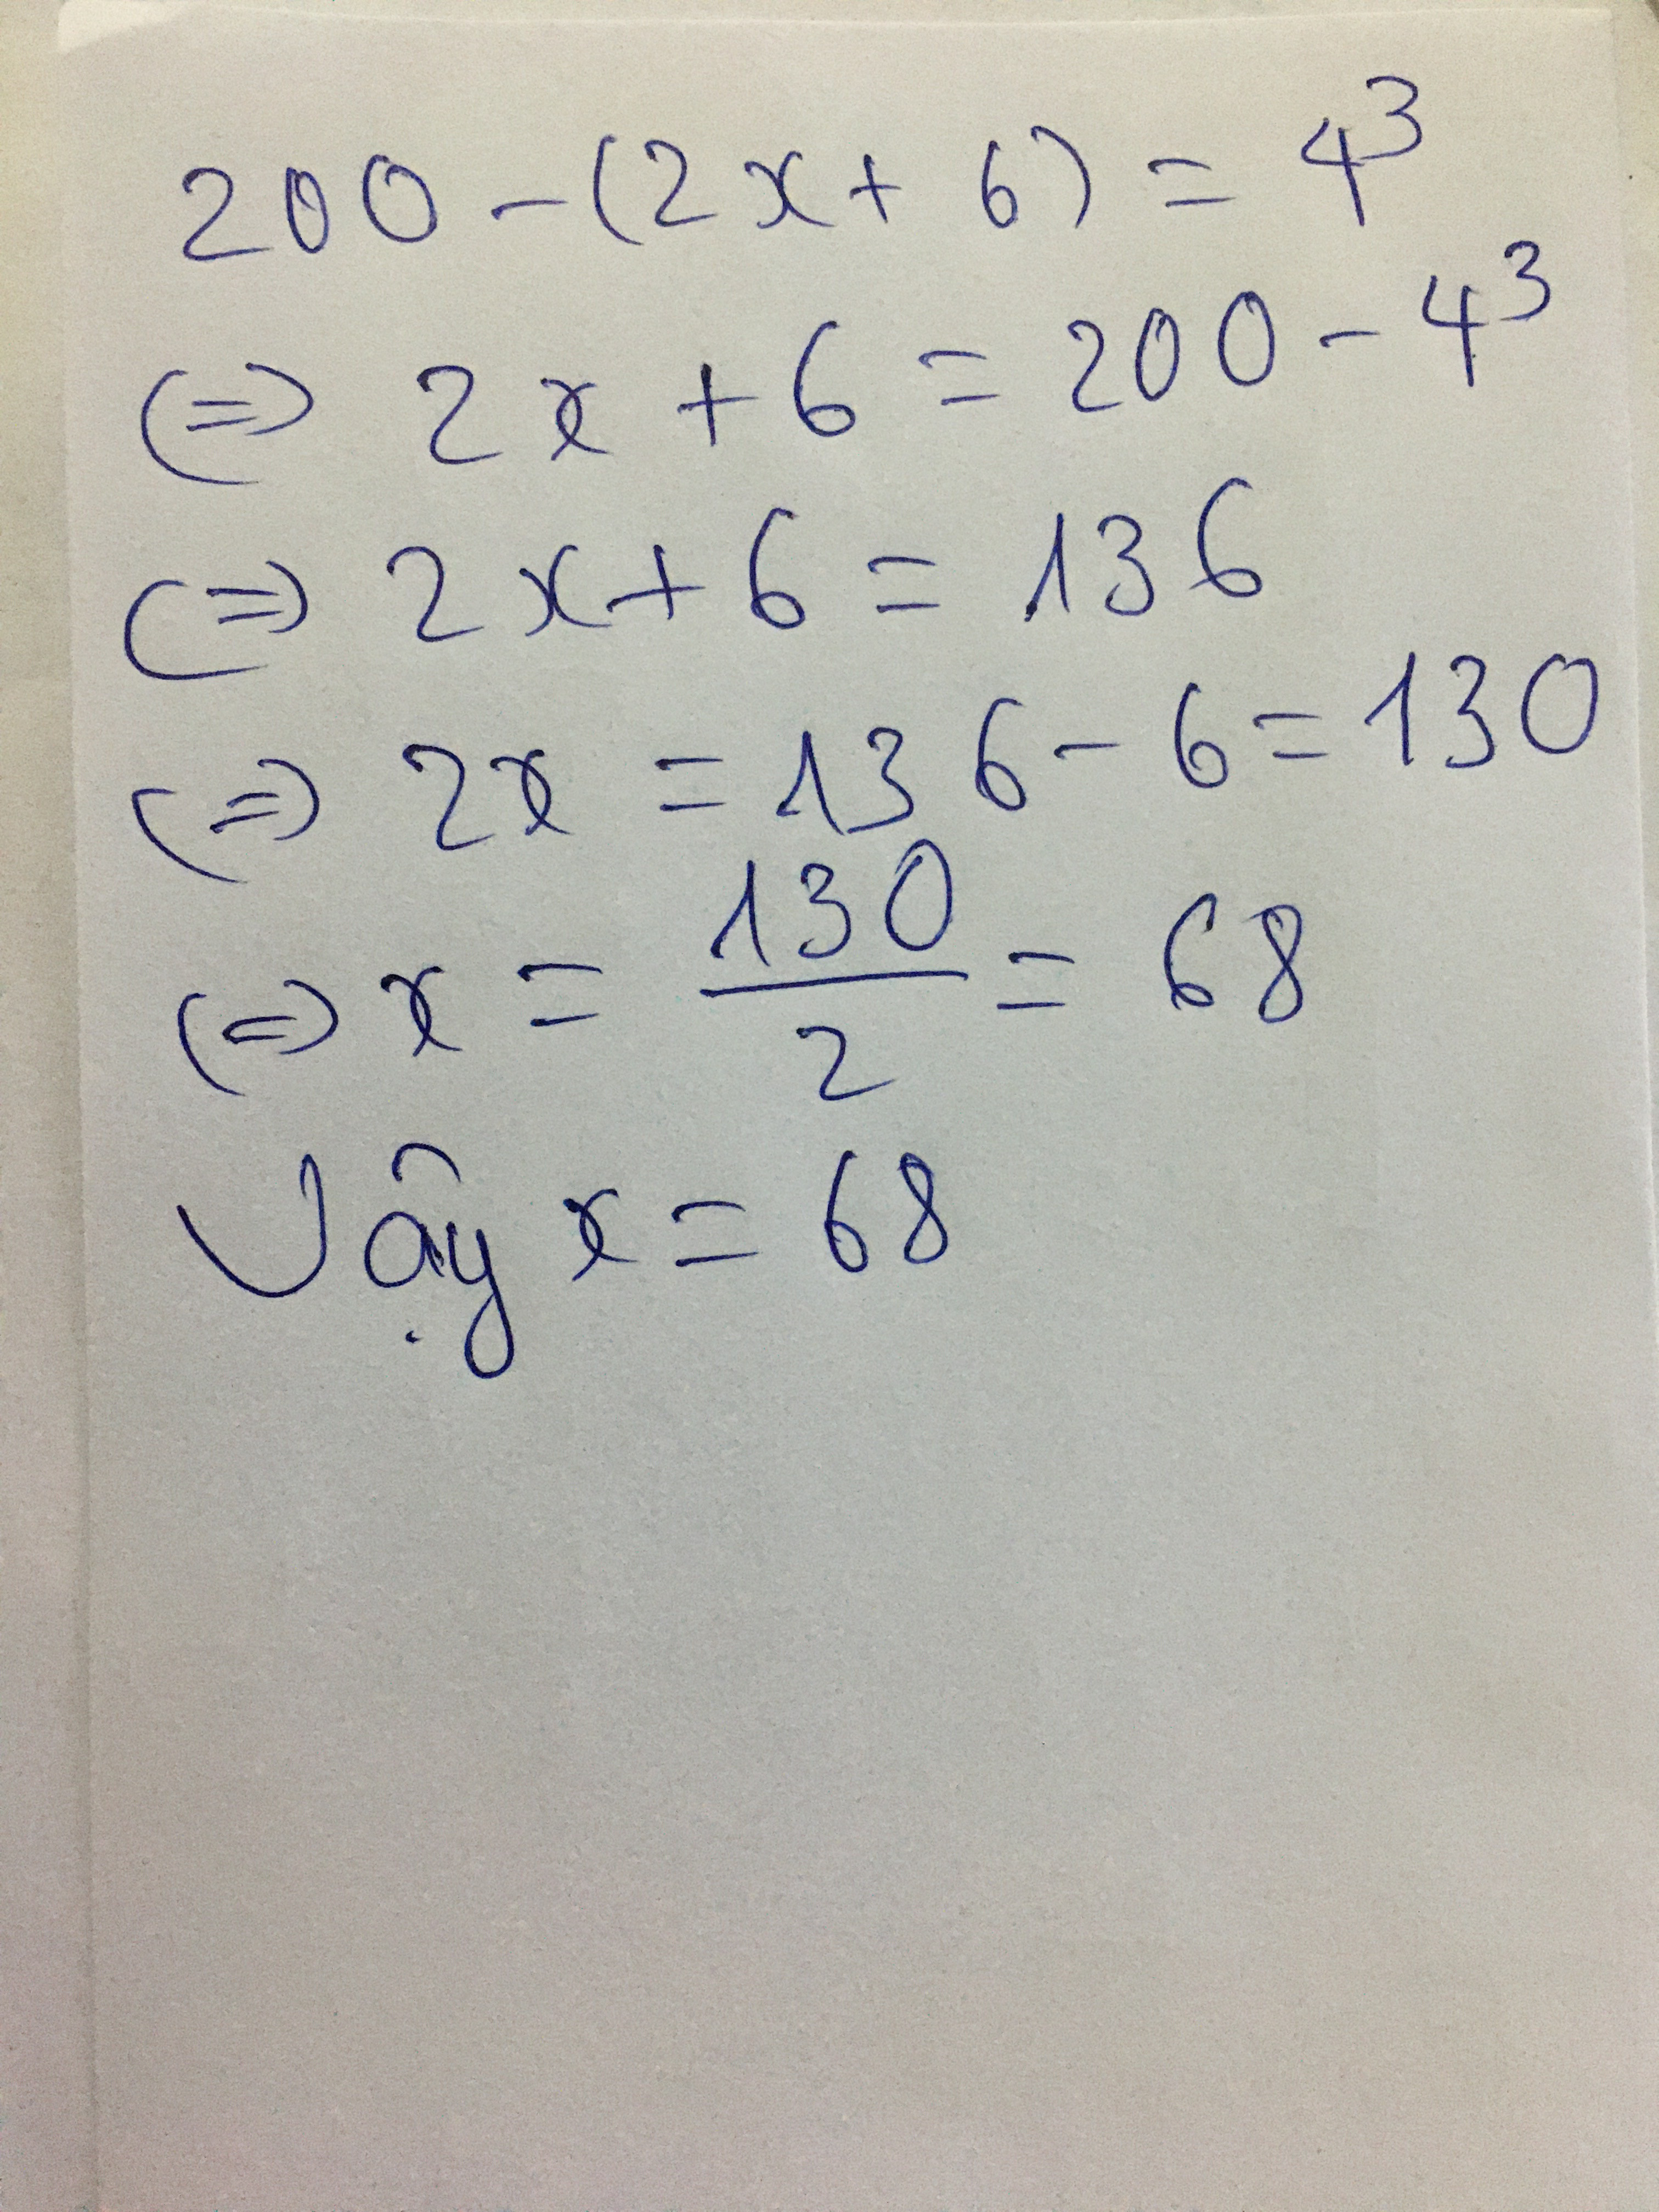 200 - (2x + 6) = 4³
(=) 2x + 6 = 200 - 4³
(=) 2x + 6 = 136
(=) 2x = 136 - 6 = 130
(=) x = 130/2 = 68
Vậy x = 68